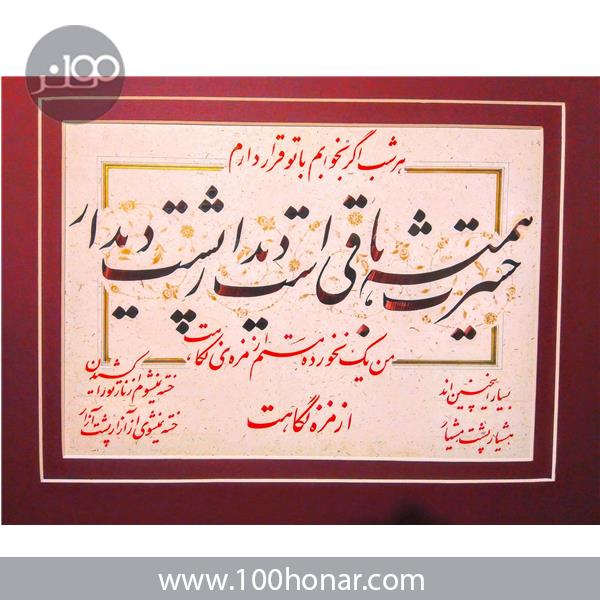 ۱۰۰هنر
هر شب اگر بخوابم با تو قرار دارم
حسرت همیشه باقی است دیدار پشت دیدار
من یک نخورده مستم از مزه‌ی نگاهت
از مزه نگاهت
بسیار اینچنین اند
هشیار پشت هشیار
خسته نمیشوم از ناز تو را کشیدن
خسته نمیشوی از آزار پشت آزار
www.100honar.com